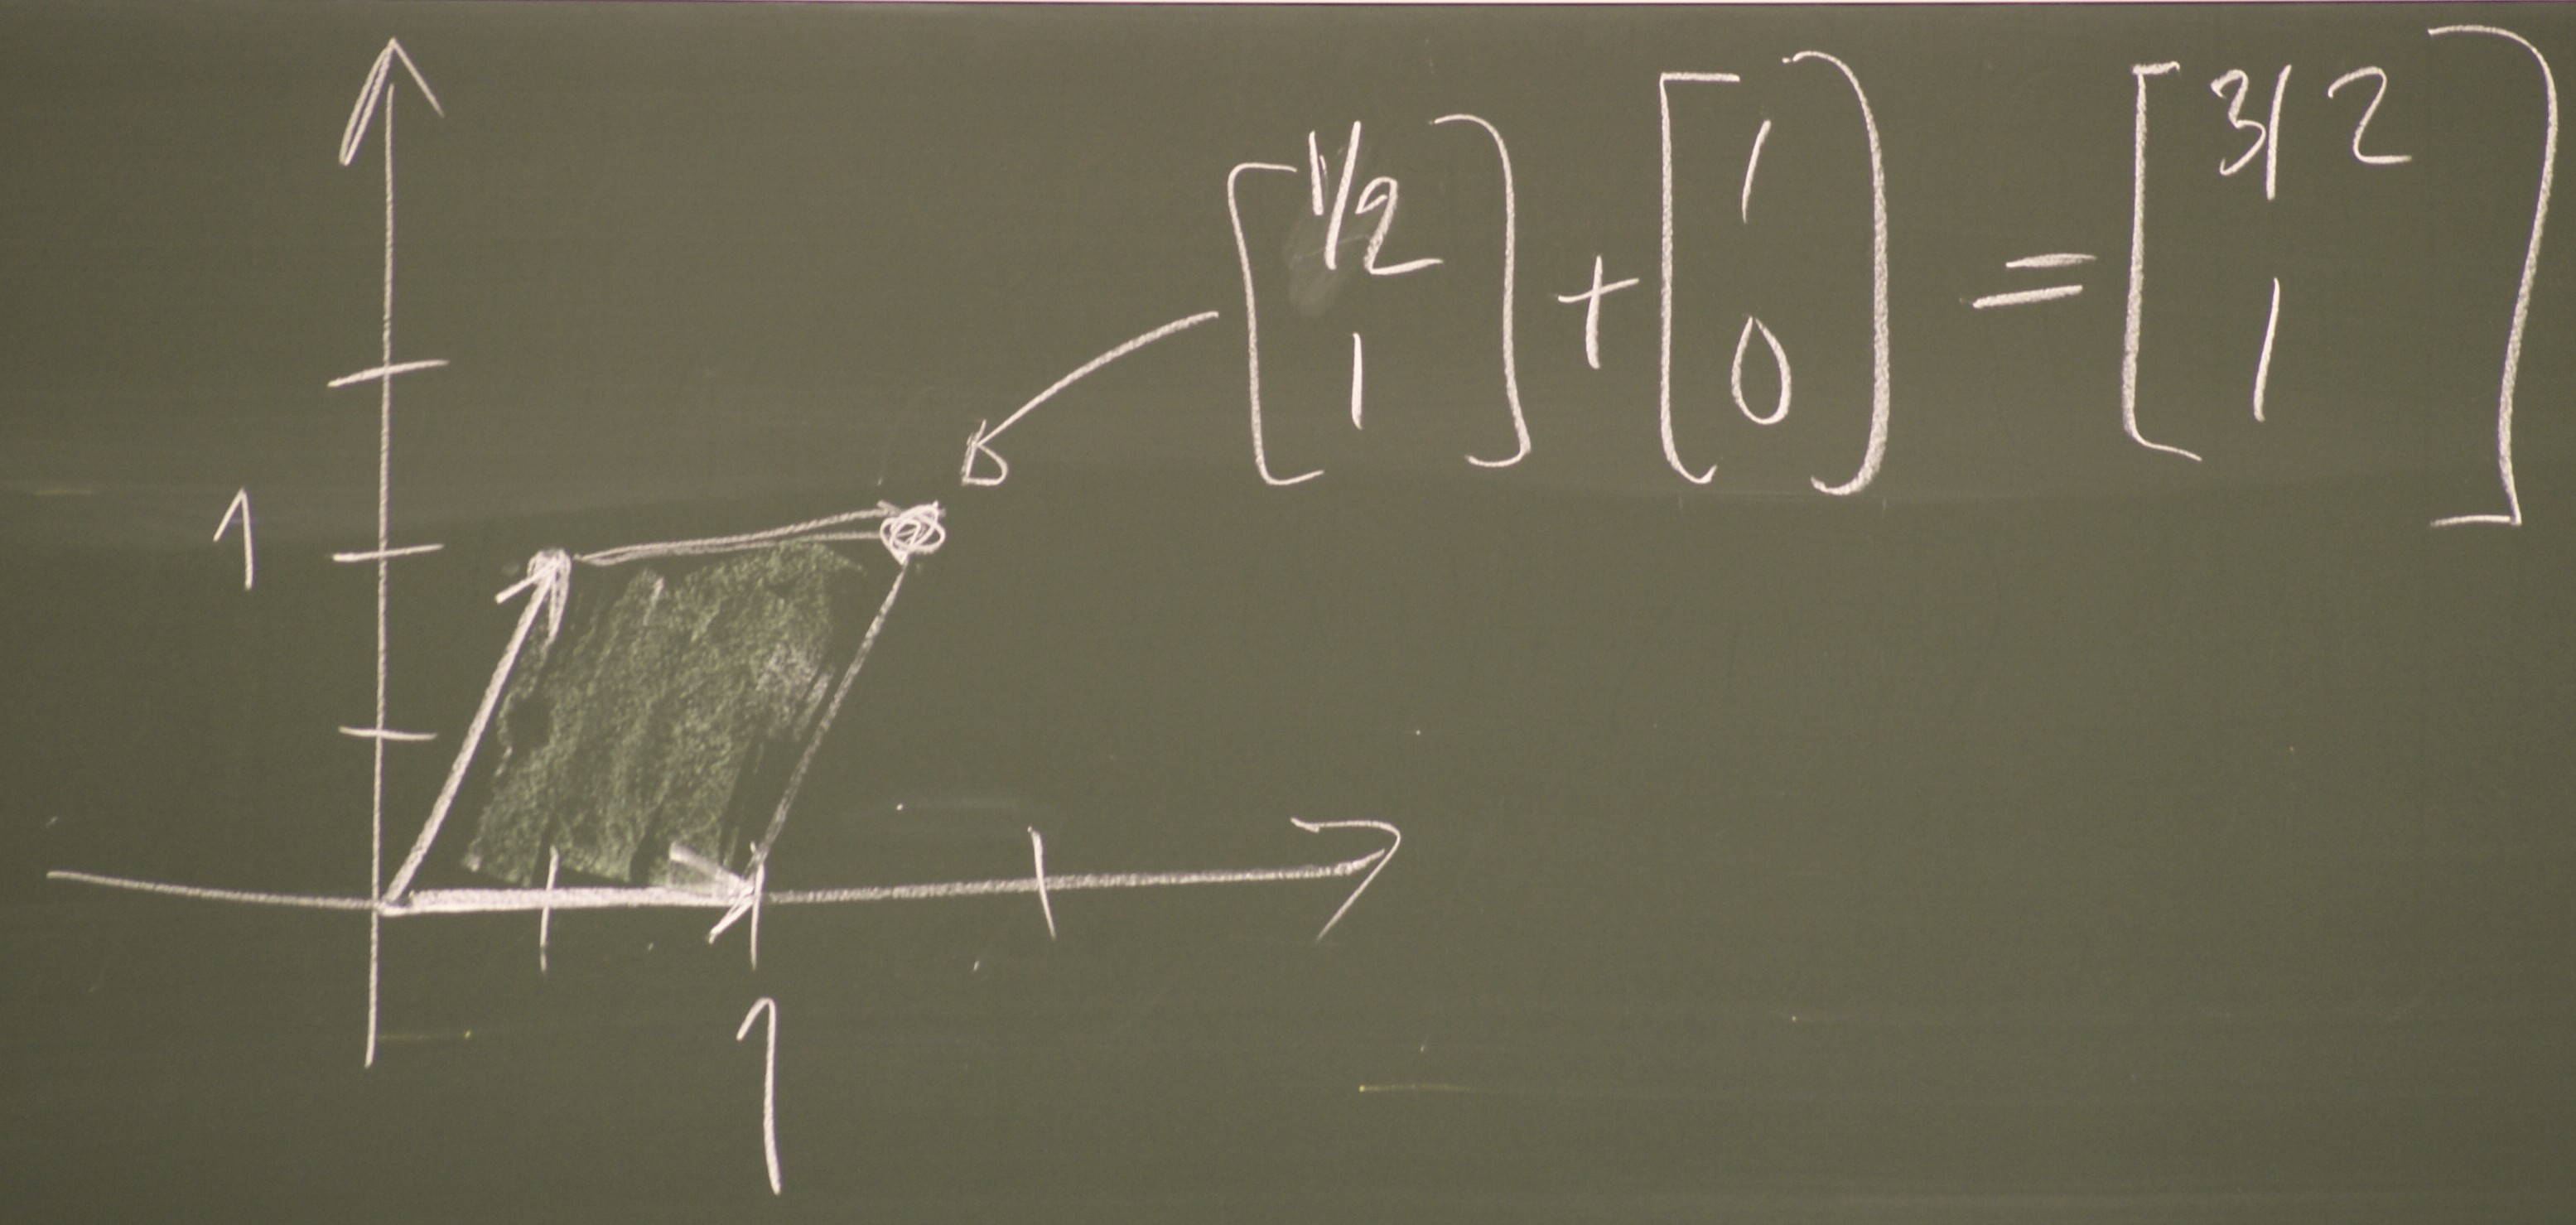 [1/2 1] + [1 0] = [3/2 1]
1
1